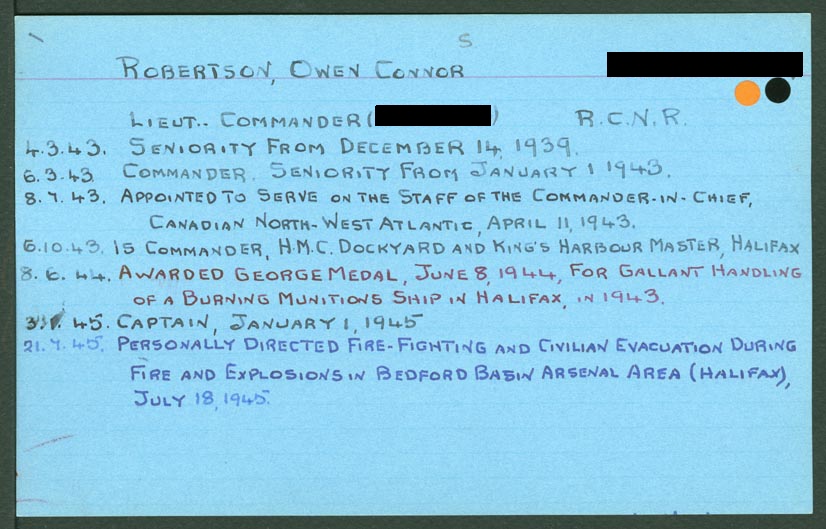 S
ROBERTSON, OWEN CONNOR
LIEUT.. COMMANDER ( ) R.C.N.R.
4.3.43. SENIORITY FROM DECEMBER 14, 1939.
6.3.43 COMMANDER. SENIORITY FROM JANUARY 1 1943.
8.7.43. APPOINTED TO SERVE ON THE STAFF OF THE COMMANDER-IN-CHIEF,
CANADIAN NORTH-WEST ATLANTIC, APRIL 11, 1943.
6.10.43. IS COMMANDER, H.M.C. DOCKYARD AND KING'S HARBOUR MASTER, HALIFAX
8.6.44. AWARDED GEORGE MEDAL, JUNE 8, 1944, FOR GALLANT HANDLING
OF A BURNING MUNITIONS SHIP IN HALIFAX, IN 1943.
45. CAPTAIN, JANUARY 1, 1945
21.7.45. PERSONALLY DIRECTED FIRE-FIGHTING AND CIVILIAN EVACUATION DURING
FIRE AND EXPLOSIONS IN BEDFORD BASIN ARSENAL AREA (HALIFAX),
JULY 18, 1945.